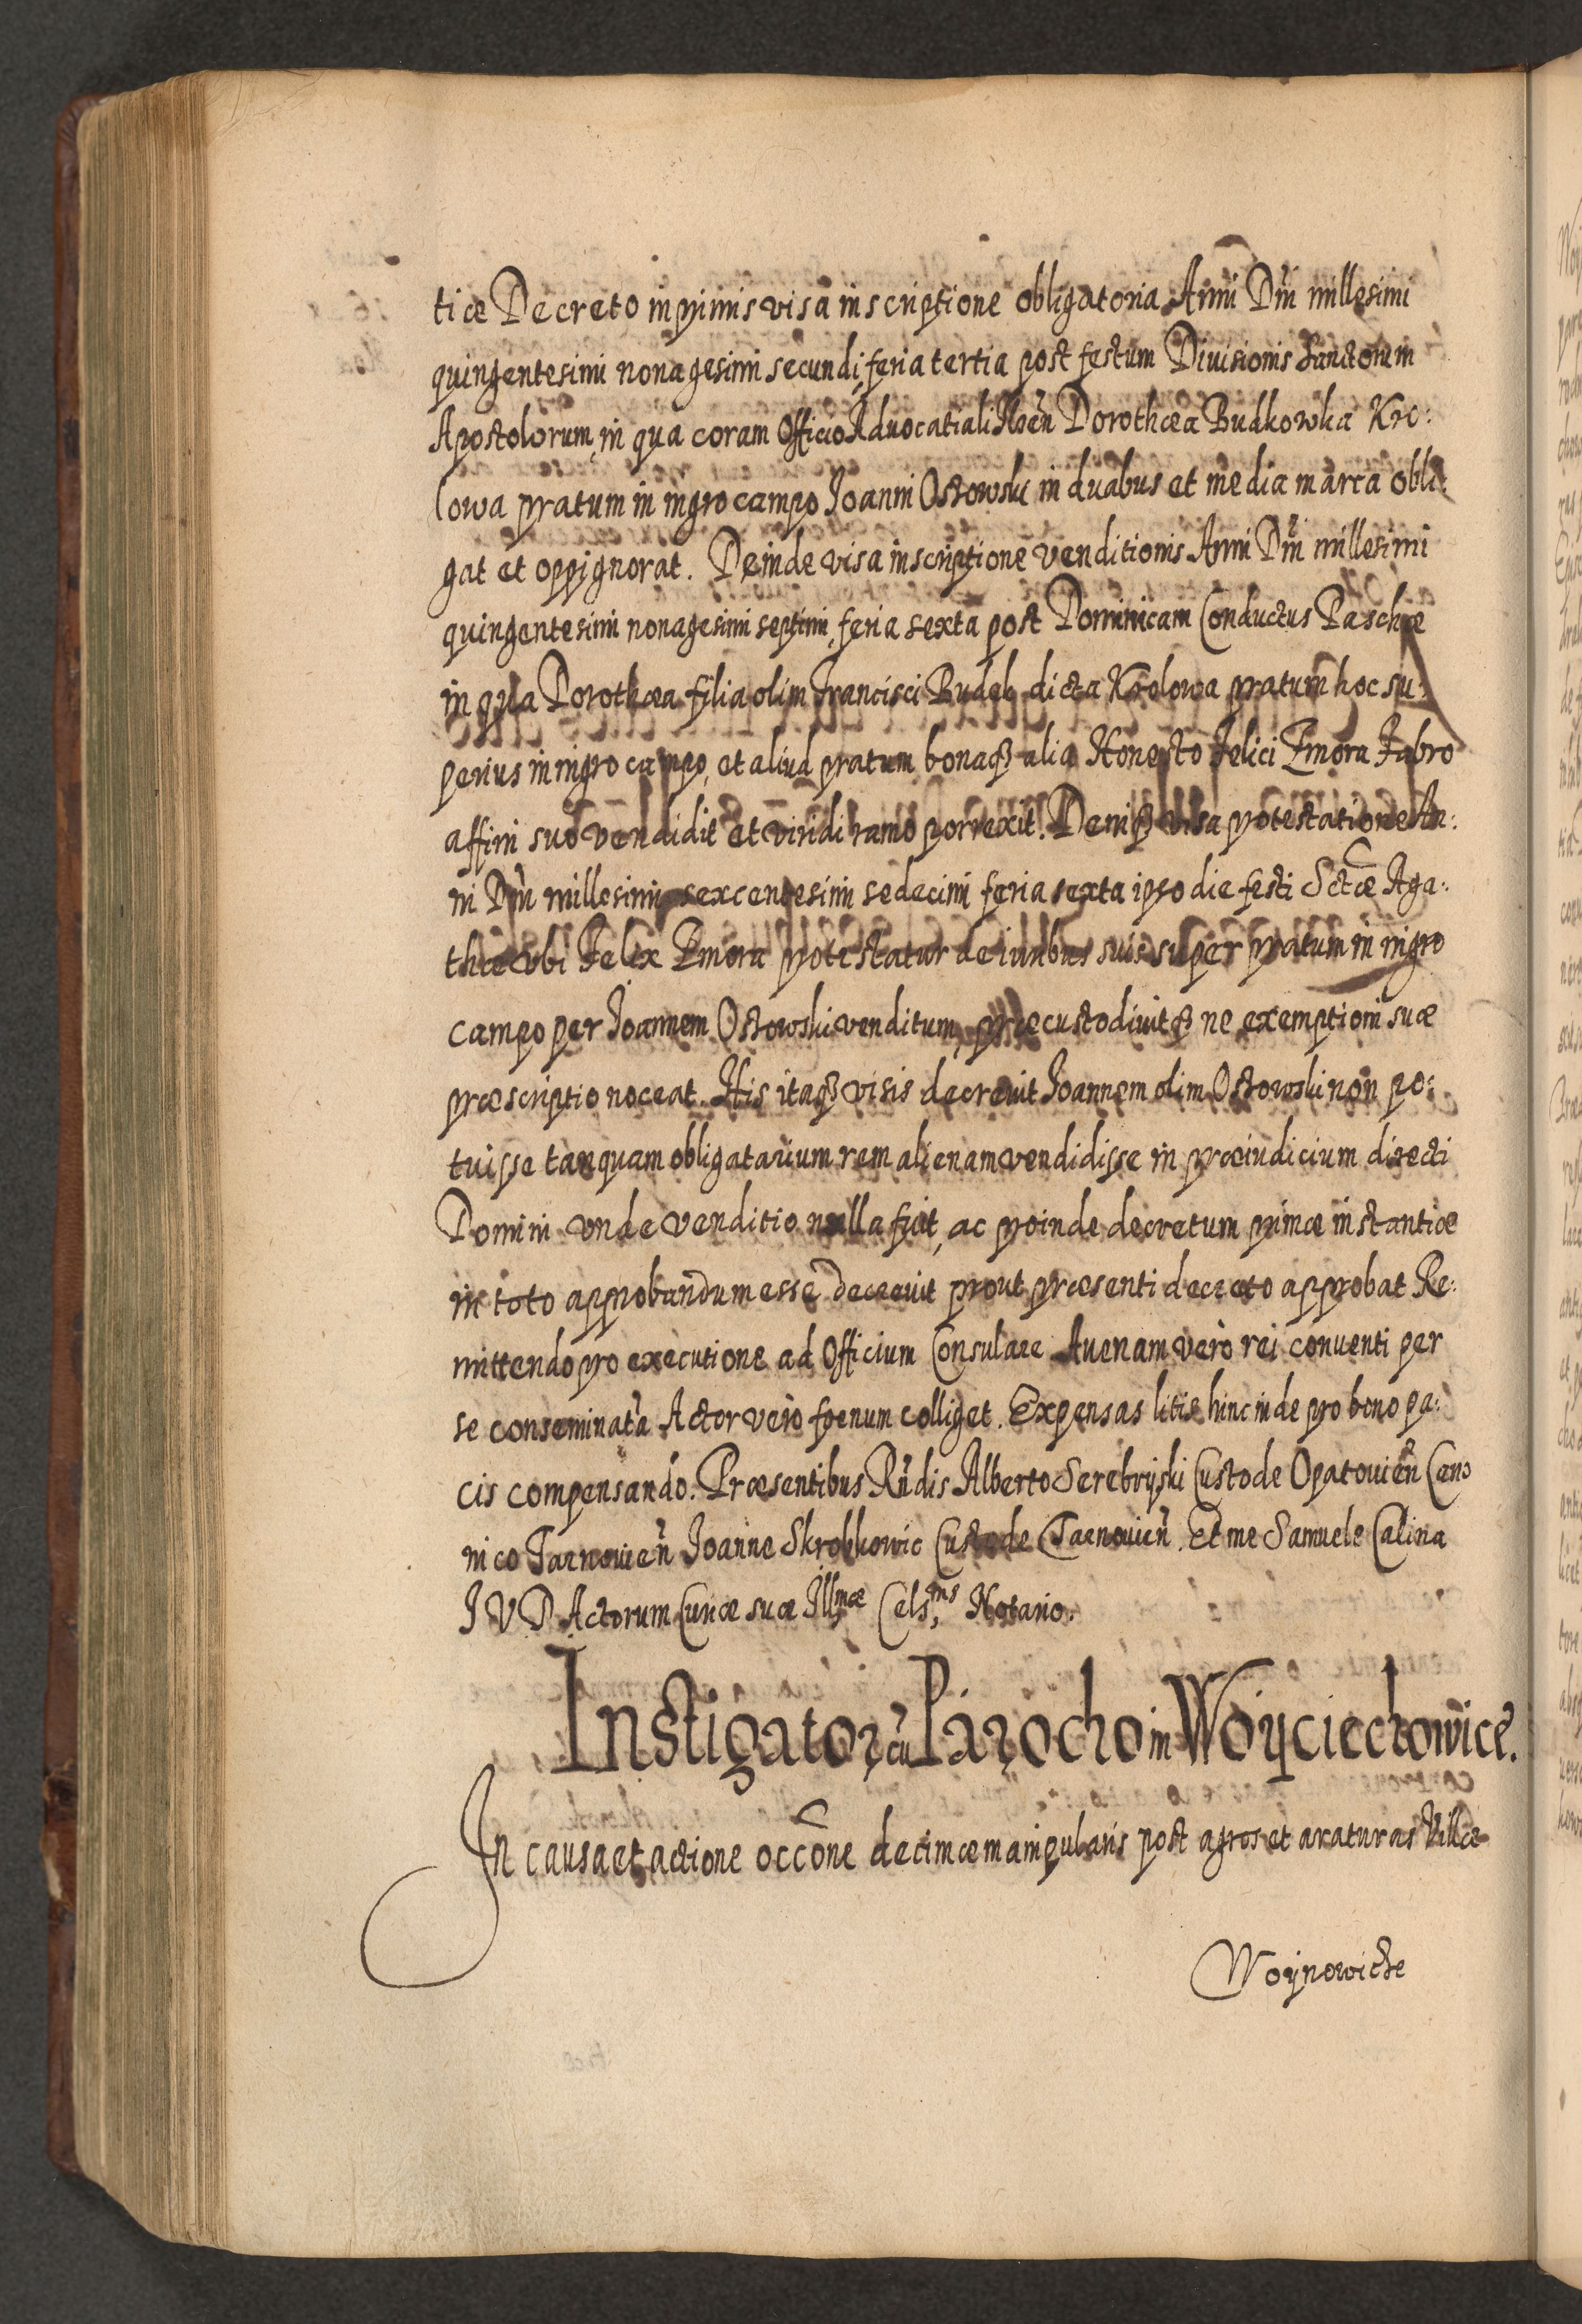 ticæ Decreto in primis visa inscriptione obligatoria Anni Dni millesimi
quingentesimi nonagesimi secundi, feria tertia post festum Divisionis Sanctorum
Apostolorum, in qua coram Officio Advocatiali Dorothæa Budkowka Kro:
lowa pratum in nigro campo Joanni Ostowski in duabus et media marca obli:
gat et oppignorat. Deinde visa inscriptione venditionis Anni Dni millesimi
quingentesimi nonagesimi septimi, feria sexta post Dominicam Conductus Paschæ
in qua Dorothæa filia olim Francisci Budek dicta Krolowa pratum hoc su:
perius in nigro campo, et aliud pratum bonaqꝫ alia Honesto Felici Zmora Fabro
affini suo vendidit et viridi ramo porrexit. Deniqꝫ visa protestatione An:
ni Dni millesimi sexcentesimi sedecimi feria sexta ipso die festi Sctæ Aga:
thæ vbi Felix Zmora protestatur de iuribus suis super pratum in nigro
campo per Joannem Ostowski venditum, præcustodiuitqꝫ ne exemptioni suæ
præscriptio noceat. His itaqꝫ visis decrevit Joannem olim Ostowski non po:
tuisse tanquam obligatarium rem alienam vendidisse in præiudicium directi
Domini vnde venditio nulla fuit, ac proinde decretum primæ instantiæ
in toto approbandum esse decrevit prout præsenti decreto approbat Re:
mittendo pro executione ad Officium Consulare Auenam vero rei conventi per
se conseminata Actor vero foenum colliget. Expensas litis hinc inde pro bono pa:
cis compensando. Præsentibus Rndis Alberto Serebryski Custode Opatouien Cano
nico Tarnovien Joanne Skrobkowic Custode Tarnouien. Et me Samuele Calina
J V D Actorum Curiæ suæ Illmæ Cels,nis Notario.
Instigator cu Parocho in Woyciechowice.
In causa et actione occone decimæ manipularis post agros et araturas Villæ
Woynowicze